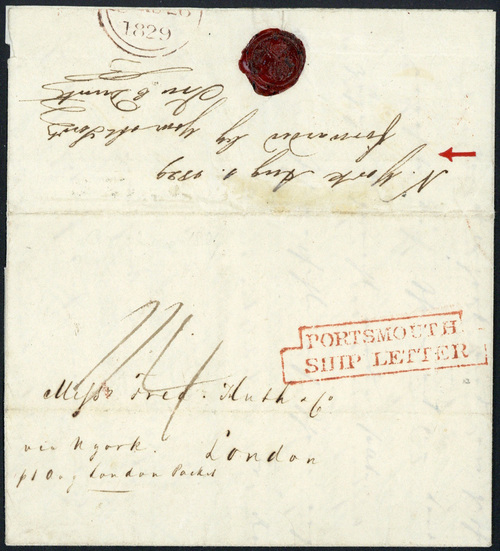 1829
N. York Aug 1. 1829
Forwarded by Your ob Servt
PORTSMOUTH
SHIP LETTER
Messrs Fred. Huth & Co
via N york. London
London Packet